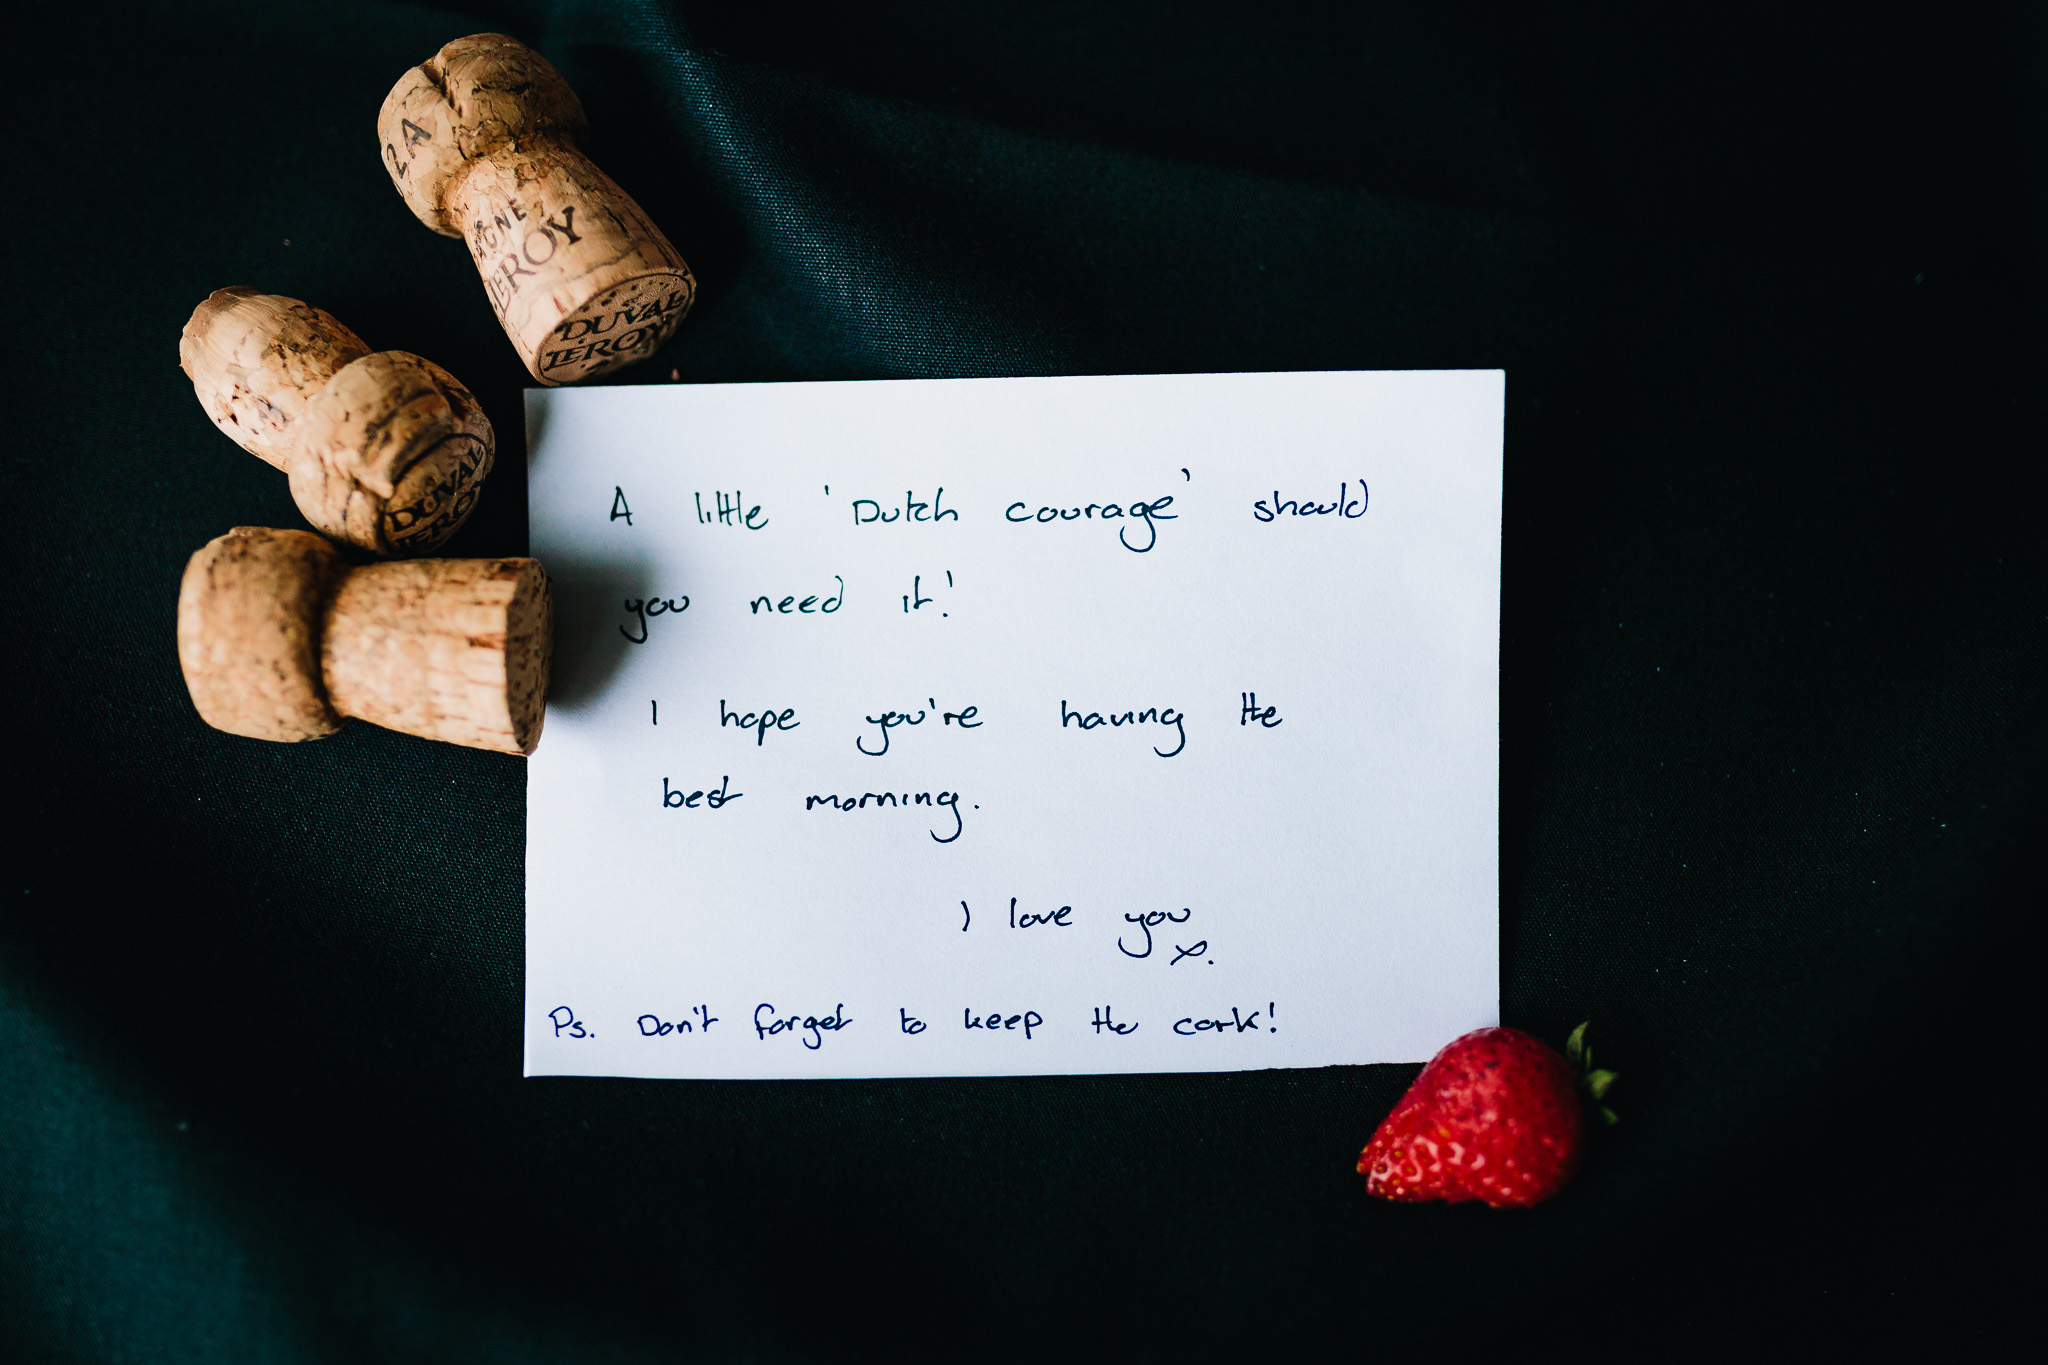 2A
GNE
LEROY
DUVAL
LEROY
DUVAL
LEROY
A little 'Dutch courage' should
you need it!
I hope you're having the
best morning.
I love you
x.
Ps. Don't forget to keep the cork!